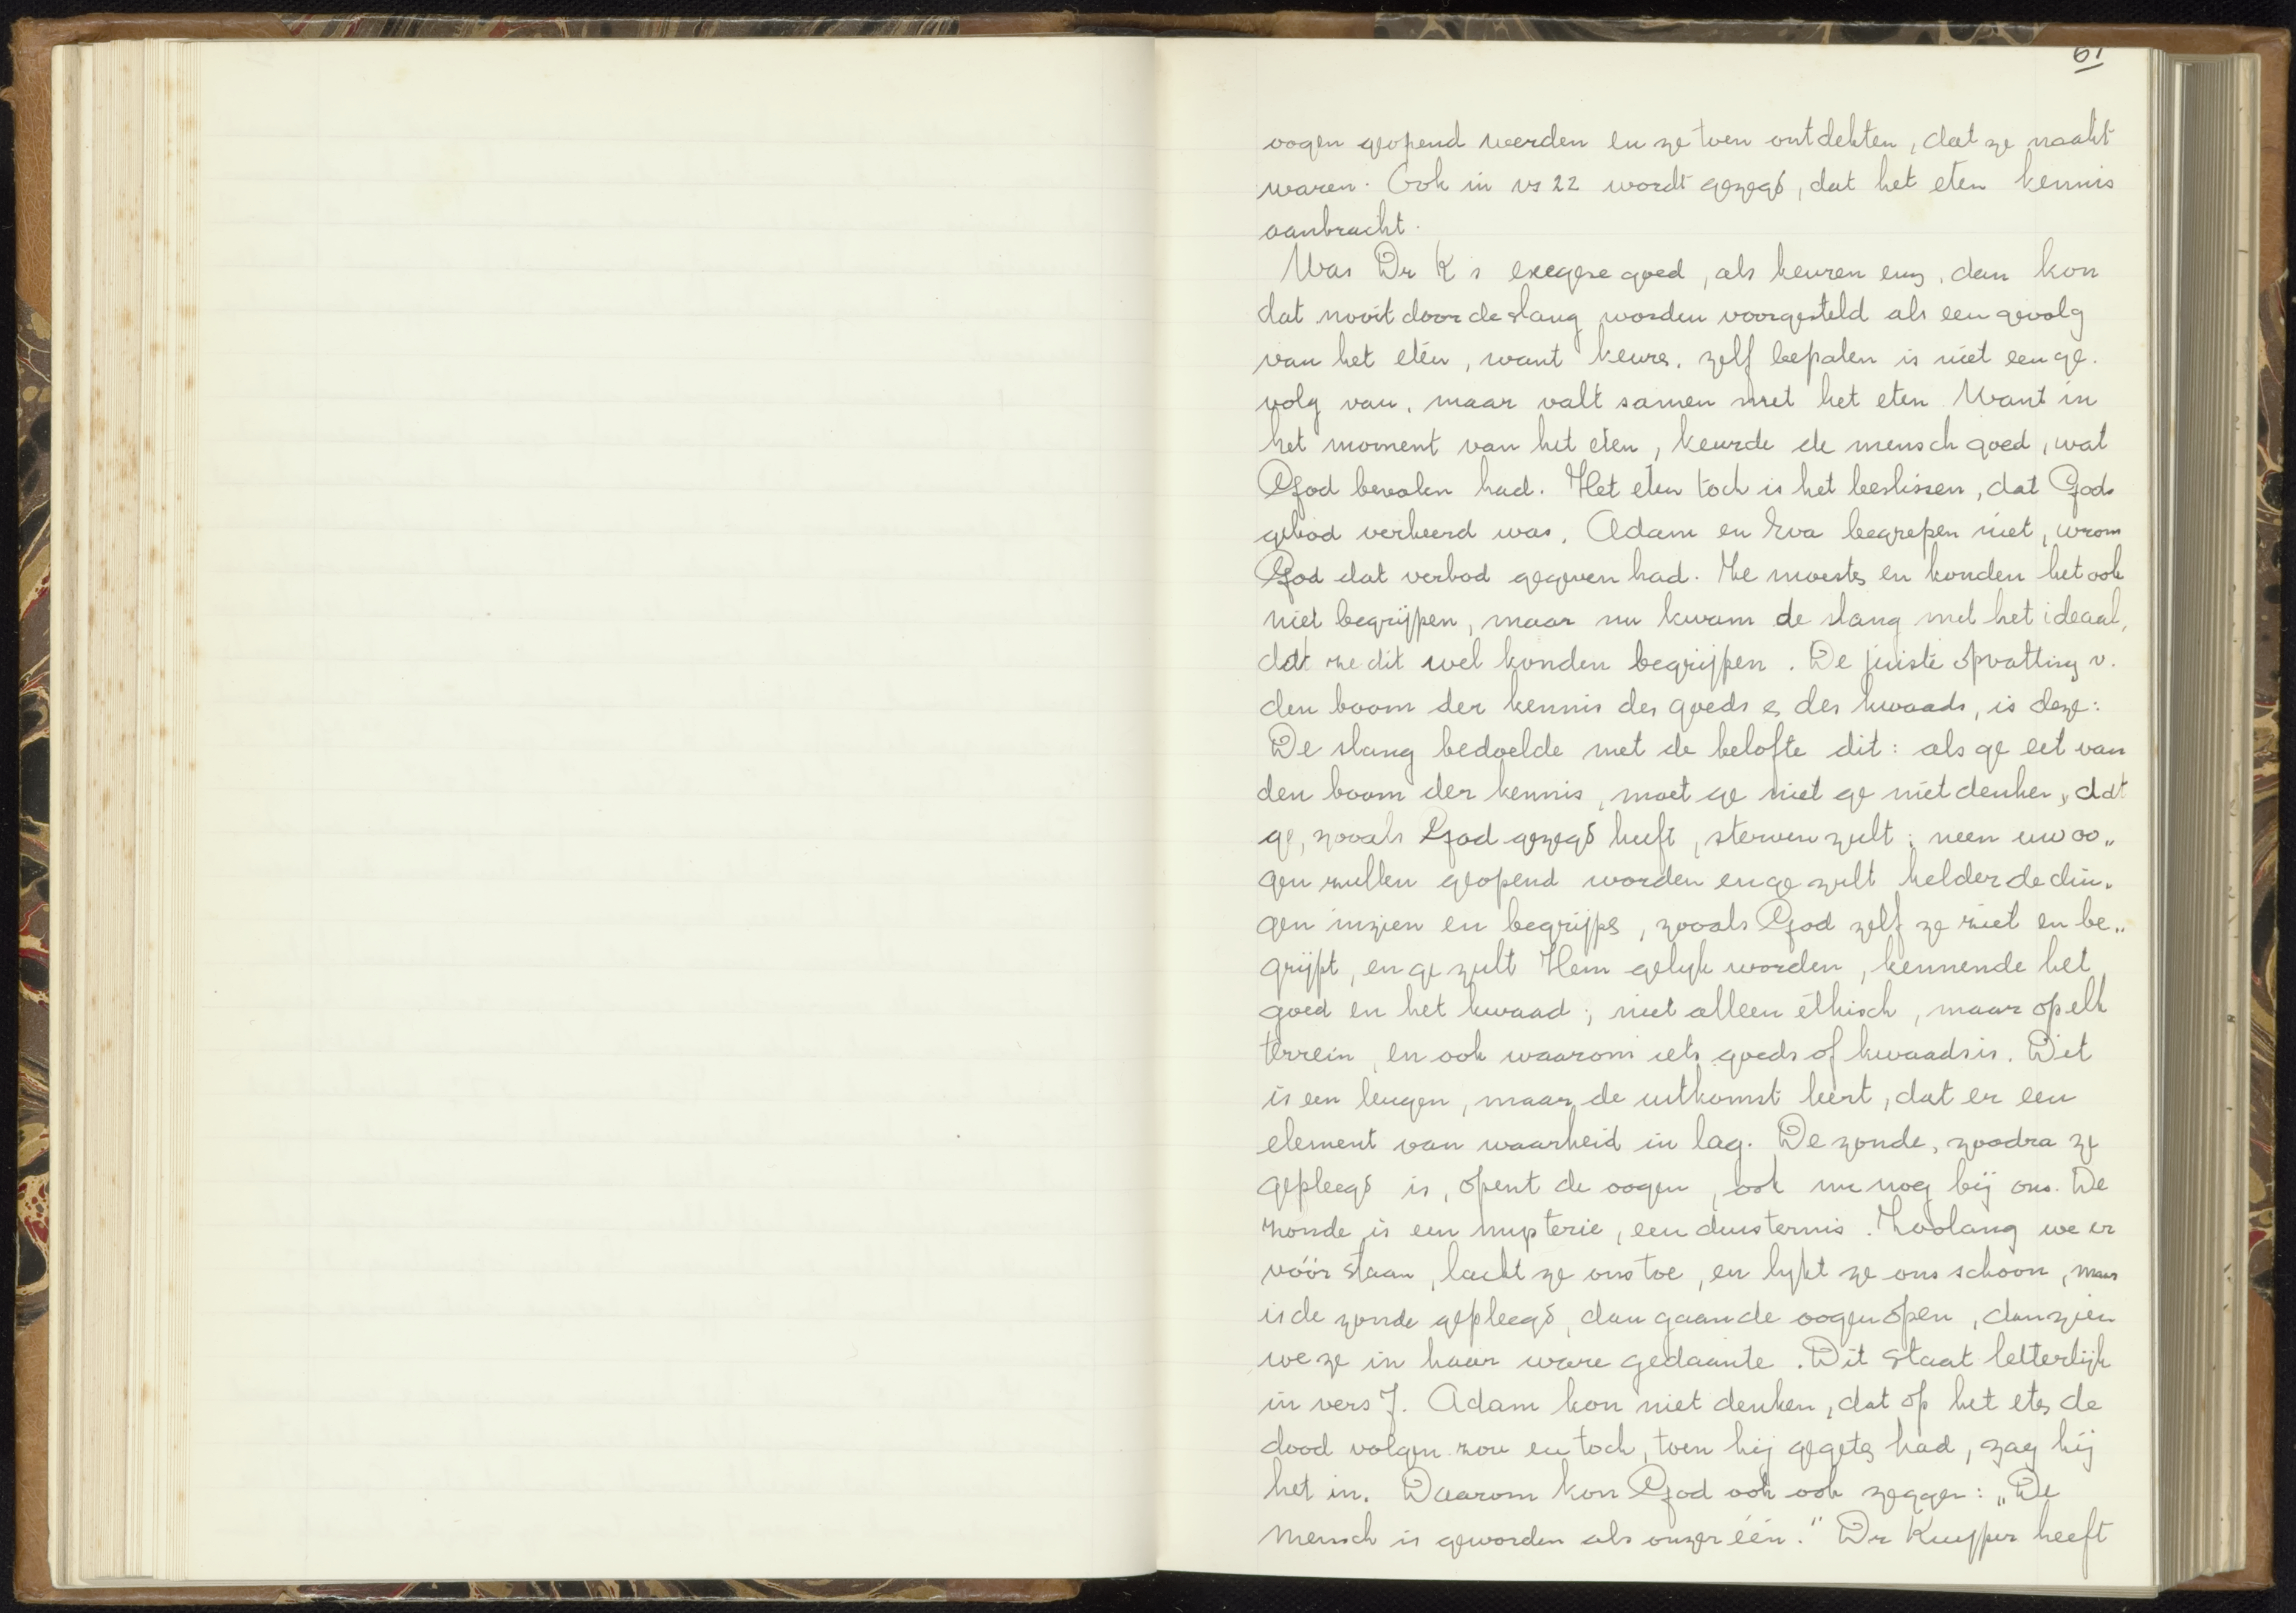 61
oogen geopend werden en ze toen ontdekten, dat ze naakt
waren. Ook in vs 22 wordt gezegd, dat het eten kennis
aanbracht.
Was Dr K's exegese goed, als keuren enz, dan kon
dat nooit door de slang worden voorgesteld als een gevolg
van het eten, want keure, zelf bepalen is niet een ge-
volg van, maar valt samen met het eten Want in
het moment van het eten, keurde de mensch goed, wat
God bevolen had. Het eten toch is het beslissen, dat Gods
gebod verkeerd was. Adam en Eva begrepen niet, wrom
God dat verbod gegeven had. Ze moesten en konden het ook
niet begrijpen, maar nu kwam de slang met het ideaal,
dat ze dit wel konden begrijpen. De juiste opvatting v.
den boom der kennis des goeds en des kwaads, is deze:
De slang bedoelde met de belofte dit: als ge eet van
den boom der kennis, moet ge niet ge niet denken, dat
ge, zooals God gezegd heeft, sterven zult; neen uw oo„
gen zullen geopend worden en ge zult helder de din-
gen inzien en begrijpen, zooals God zelf ze ziet en be„
grijpt, en ge zult Hem gelyk worden, kennende het
goed en het kwaad; niet alleen éthisch, maar op elk
terrein, en ook waarom iets goeds of kwaads is. Dit
is een leugen, maar de uitkomst leert, dat er een
element van waarheid in lag. De zonde, zoodra ze
gepleegd is, opent de oogen, ook nu nog bij ons. De
zonde is een mysterie, een duisternis. Zoolang we er
vóór staan, lacht ze ons toe, en lykt ze ons schoon, maar
is de zonde gepleegd, dan gaan de oogen open, dan zien
we ze in haar ware gedaante. Dit staat letterlijk
in vers 7. Adam kon niet denken, dat op het eten de
dood volgen zou en toch, toen hij gegeten had, zag hij
het in. Daarom kon God ook ook zeggen: „De
mensch is geworden als onzer één." Dr Kuyper heeft